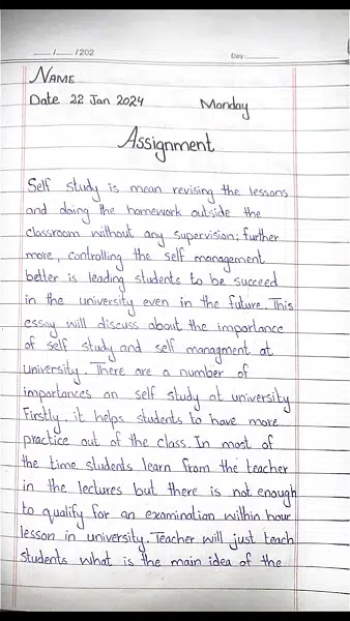 __/__/202
Day
NAME
Date 22 Jan 2024 Monday
Assignment
Self study is mean revising the lessons
and doing the homework outside the
classroom without any supervision; further
more, controlling the self management
better is leading students to be succeed
in the university even in the future. This
essay will discuss about the importance
of self study and self managment at
university. There are a number of
importances on self study at university
Firstly, it helps students to have more
practice out of the class. In most of
the time students learn from the teacher
in the lectures but there is not enough
to qualify for an examination within hour
lesson in university. Teacher will just teach
students what is the main idea of the